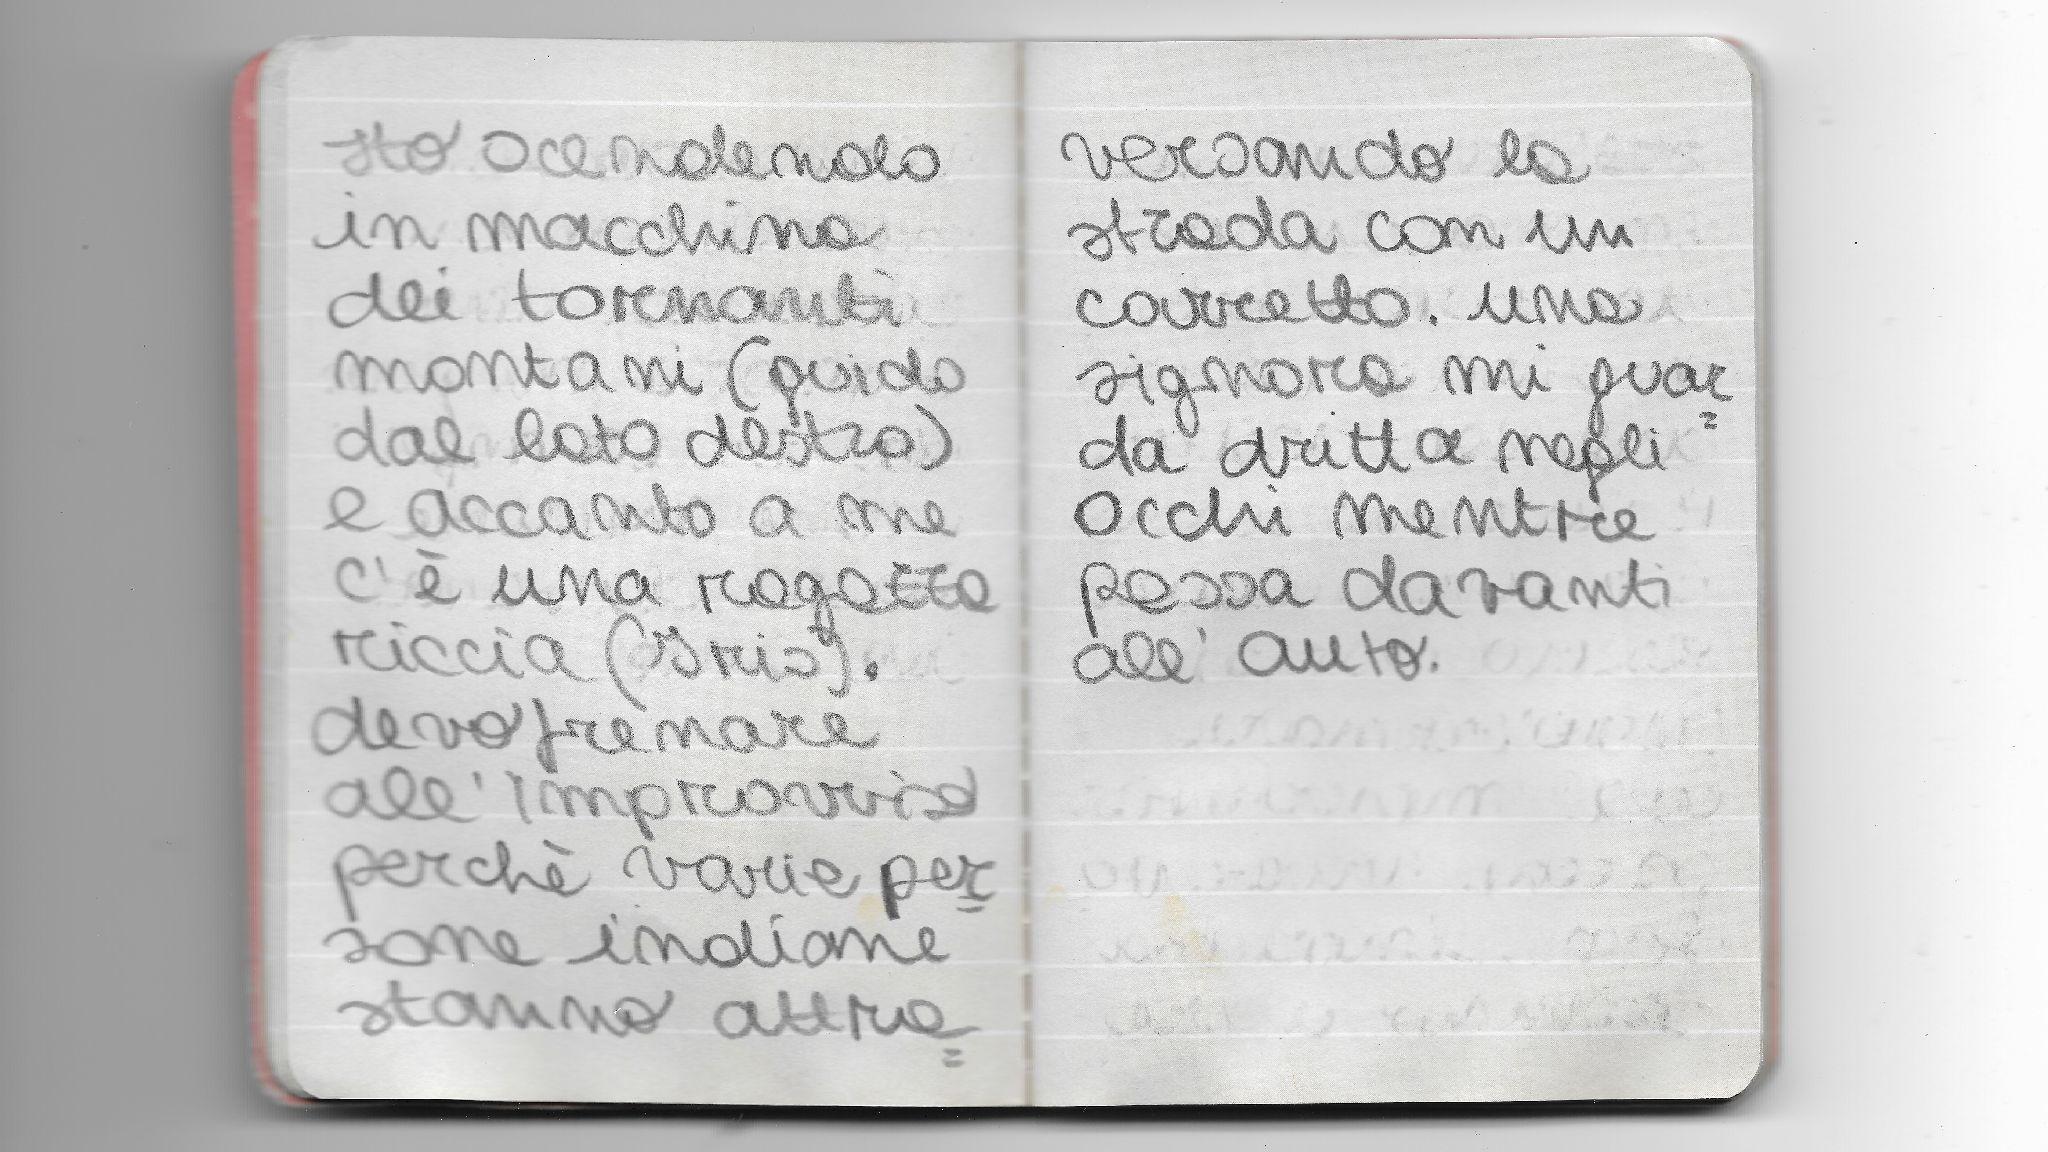 sto scendendo
in macchina
dei tornanti
montani (guido
dal lato destro)
e accanto a me
c'è una ragazza
riccia (Iris).
devo frenare
all'improvviso
perchè varie per=
sone indiane
stanno attra=
versando la
strada con un
carretto. una
signora mi guar=
da dritta negli
occhi mentre
passa davanti
all'auto.